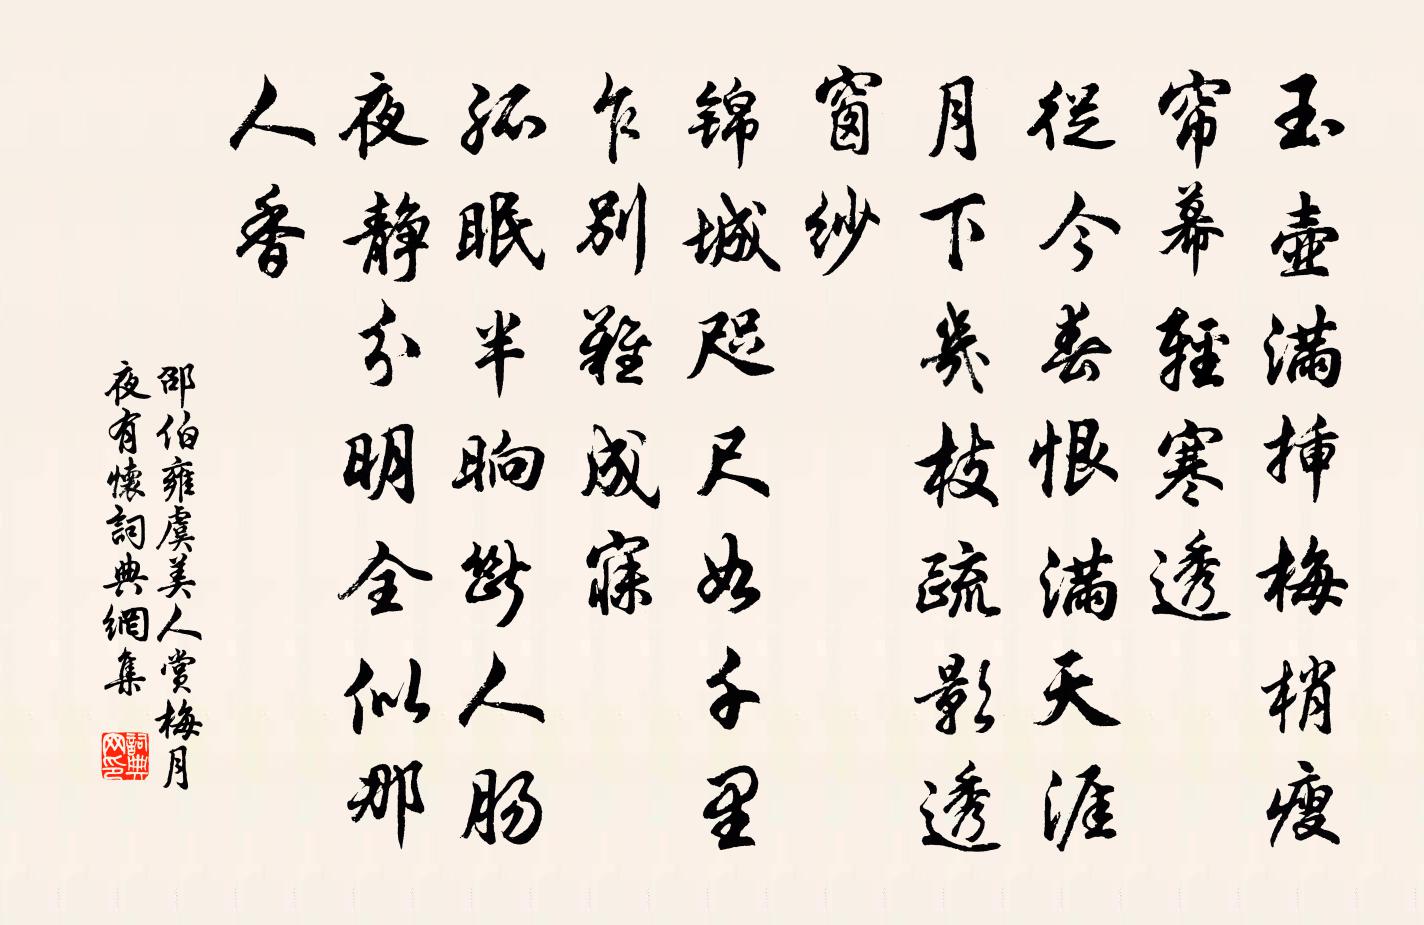 玉壺滿揷梅梢瘦
帘幕輕寒透
從今春恨滿天涯
月下幾枝疏影透
窗紗
錦城咫尺如千里
乍別難成寐
孤眠半晌斷人肠
夜靜分明全似那
人香
邵伯雍虞美人賞梅月
夜有懷詞典網集
詞典
网印